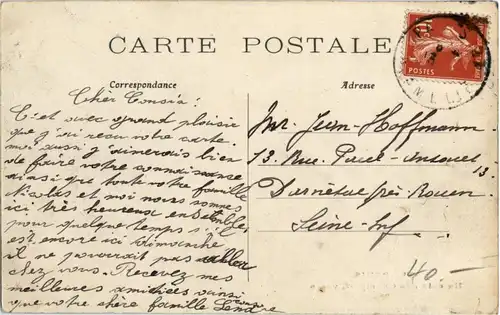 CARTE POSTALE
Correspondance
Adresse
POSTES
10
Cher Cousin:
C'est avec grand plaisir
que j'ai reçu votre carte.
moi aussi j'aimerais bien
de faire votre connaissance
ainsi que toute votre famille
Nicolas et moi nous sommes
ici très heureux en
pour quelque temps
est encore ici
il ne pourrait pas aller
chez vous. Recevez mes
meilleures amitiées ainsi
que votre chère famille
Mr. Jean Hoffmann
13. Rue Paul 13
Darnétal près Rouen
Seine-Inf
40.-